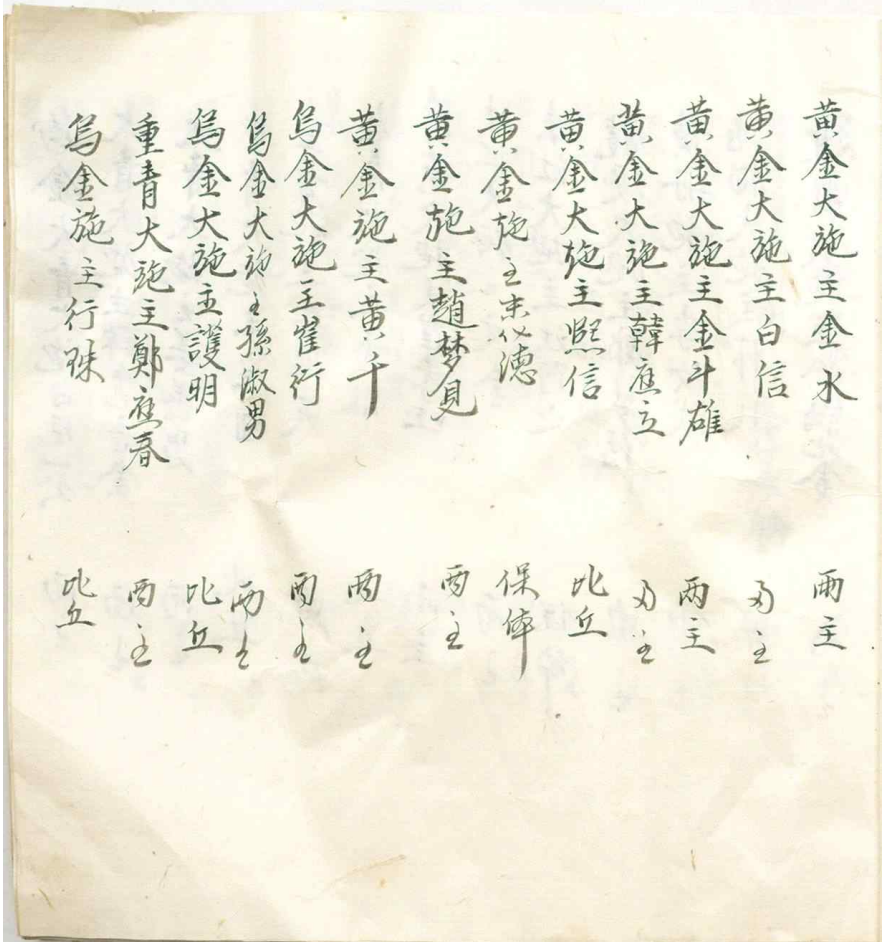 黃金大施主金水 兩主
黃金大施主白信 兩主
黃金大施主金斗雄 兩主
黃金大施主韓應立 兩主
黃金大施主熙信 比丘
黃金施主宋必德 保体
黃金施主趙梦見 兩主
黃金施主黃千 兩主
烏金大施主崔行 兩主
烏金大施主孫淑男 兩主
烏金大施主護明 比丘
重青大施主鄭應春 兩主
烏金施主行珠 比丘